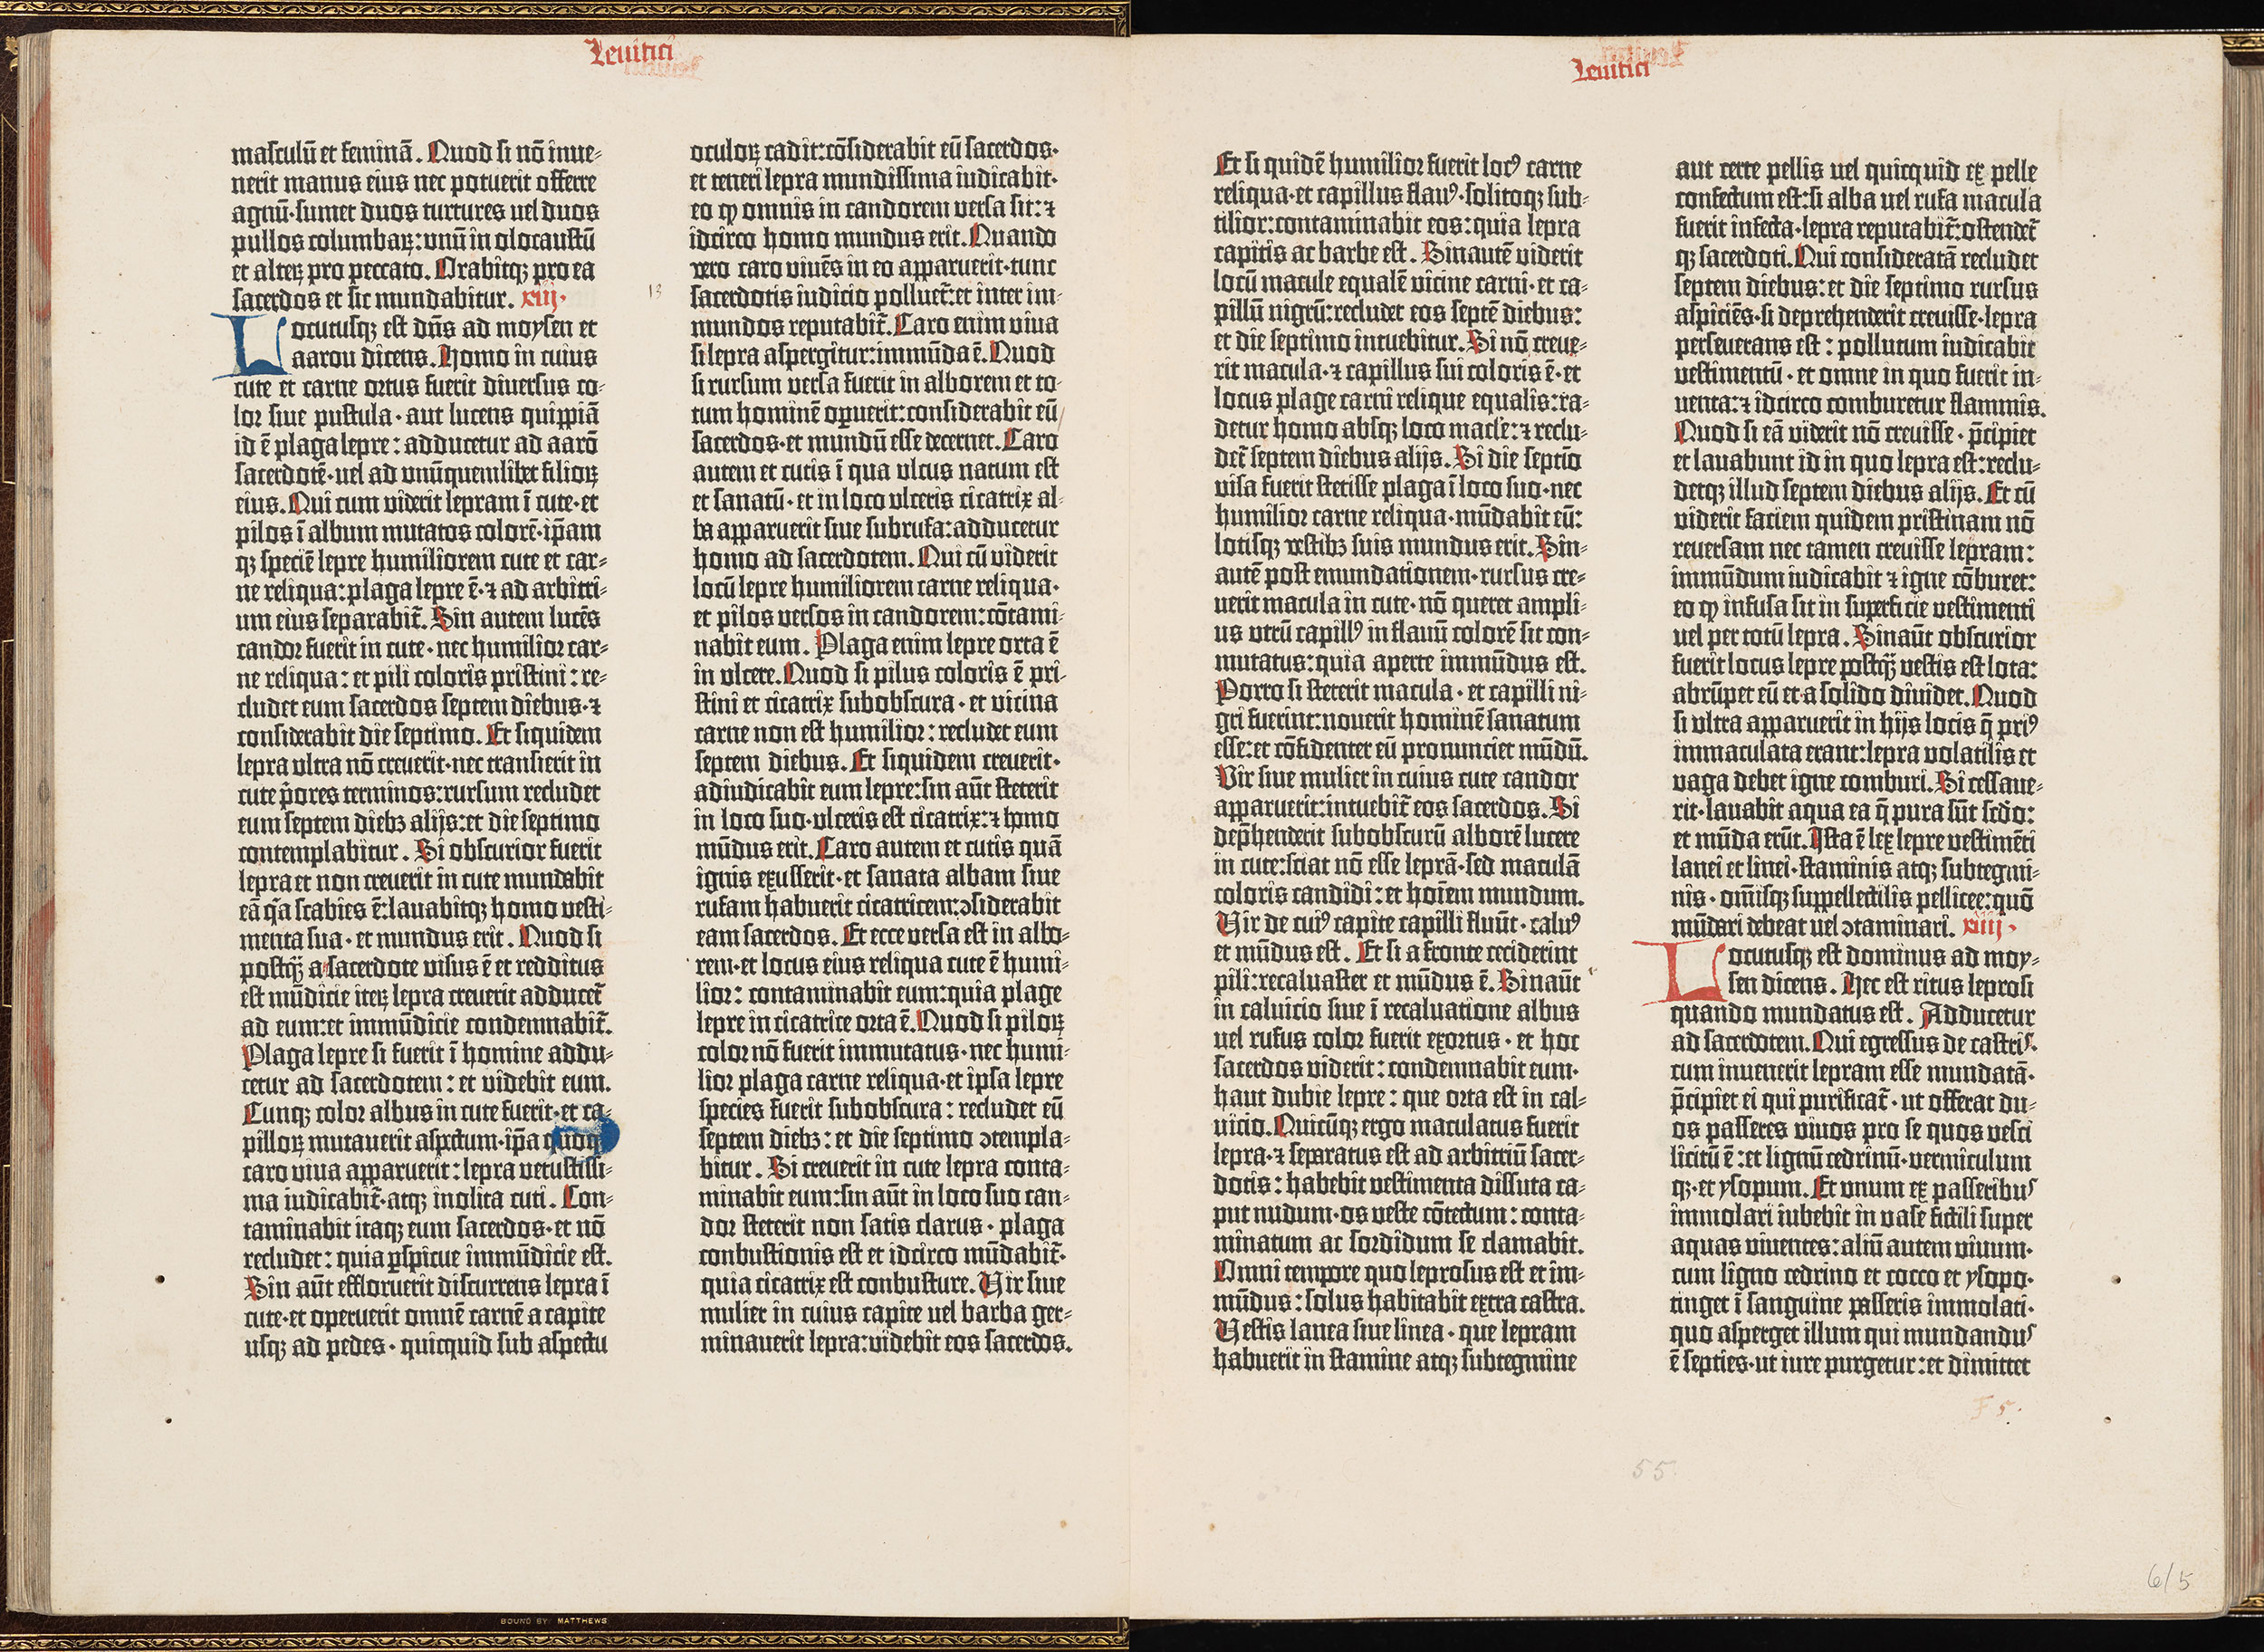 Leuitici
masculū et feminā. Quod si nō inue-
nerit manus eius nec potuerit offerre
agnū·sumet duos turtures uel duos
pullos columbaꝝ:unū in olocaustū
et alteꝝ pro peccato. Orabitqꝫ pro ea
sacerdos et sic mundabitur. xiij·
Locutusqꝫ est dn̄s ad moysen et
aarou dicens. Homo in cuius
cute et carne ortus fuerit diuersus co-
lor siue pustula·aut lucens quippiā
id ē plaga lepre: adducetur ad aarō
sacerdotē·uel ad unūquemlibet filioꝝ
eius. Qui cum viderit lepram ī cute·et
pilos ī album mutatos colorē·ip̄am
qꝫ speciē lepre humiliorem cute et car-
ne reliqua:plaga lepre ē·⁊ ad arbitri-
um eius separabit̄. Sin autem lucēs
candor fuerit in cute·nec humilior car-
ne reliqua: et pili coloris pristini: re-
cludet eum sacerdos septem diebus·⁊
considerabit die septimo. Et siquidem
lepra ultra nō creuerit·nec transierit in
cute p̄ores terminos:rursum recludet
eum septem diebꝫ alijs:et die septimo
contemplabitur. Si obscurior fuerit
lepra et non creuerit in cute mundabit
eā q̄a scabies ē:lauabitqꝫ homo vesti-
menta sua·et mundus erit. Quod si
postqꝫ̄ a sacerdote visus ē et redditus
est mūdicie iteꝝ lepra creuerit adducet̄
ad eum:et immūdicie condemnabit̄.
Plaga lepre si fuerit ī homine addu-
cetur ad sacerdotem: et videbit eum.
Cunqꝫ color albus in cute fuerit·et ca-
pilloꝝ mutauerit aspectum·ip̄a quoqꝫ
caro viva apparuerit: lepra vetustissi-
ma iudicabit̄·atqꝫ inolita cuti. Con-
taminabit itaqꝫ eum sacerdos·et nō
recludet: quia ꝑspicue immūdicie est.
Sin aūt effloruerit discurrens lepra ī
cute·et operuerit omnē carnē a capite
usqꝫ ad pedes·quicquid sub aspectu
oculoꝝ cadit:cōsiderabit eū sacerdos·
et teneri lepra mundissima iudicabit·
eo ꝙ omnis in candorem versa sit: ⁊
idcirco homo mundus erit. Quando
vero caro viuēs in eo apparuerit·tunc
13 sacerdotis iudicio polluet̄:et inter im-
mundos reputabit̄. Caro enim viua
si lepra aspergitur:immūda ē. Quod
si rursum versa fuerit in alborem et to-
tum hominē oꝑuerit:considerabit eū
sacerdos·et mundū esse decernet. Caro
autem et cutis ī qua ulcus natum est
et sanatū·et in loco ulceris cicatrix al-
ba apparuerit siue subrufa:adducetur
homo ad sacerdotem. Qui cū viderit
locū lepre humiliorem carne reliqua·
et pilos versos in candorem:cōtami-
nabit eum. Plaga enim lepre orta ē
in ulcere. Quod si pilus coloris ē pri-
stini et cicatrix subobscura·et vicina
carne non est humilior: recludet eum
septem diebus. Et siquidem creuerit·
adiudicabit eum lepre:sin aūt steterit
in loco suo·ulceris est cicatrix:⁊ homo
mūdus erit. Caro autem et cutis quā
ignis exusserit·et sanata albam siue
rufam habuerit cicatricem:ↄsiderabit
eam sacerdos. Et ecce versa est in albo-
rem·et locus eius reliqua cute ē humi-
lior: contaminabit eum:quia plage
lepre in cicatrice orta ē. Quod si piloꝝ
color nō fuerit immutatus·nec humi-
lior plaga carne reliqua·et ipsa lepre
species fuerit subobscura: recludet eū
septem diebꝫ: et die septimo ↄtempla-
bitur. Si creuerit in cute lepra conta-
minabit eum:sin aūt in loco suo can-
dor steterit non satis clarus·plaga
conbustionis est et idcirco mūdabit̄·
quia cicatrix est conbusture. Vir siue
mulier in cuius capite uel barba ger-
minauerit lepra:videbit eos sacerdos.
Leuitici
Et si quidē humilior fuerit locꝰ carne
reliqua·et capillus flauꝰ·solitoqꝫ sub-
tilior:contaminabit eos:quia lepra
capitis ac barbe est. Sinautē viderit
locū macule equalē vicine carni·et ca-
pillū nigrū:recludet eos septē diebus:
et die septimo intuebitur. Si nō creue-
rit macula·⁊ capillus sui coloris ē·et
locus plage carni relique equalis:ra-
detur homo absqꝫ loco macl̄e: ⁊ reclu-
det̄ septem diebus alijs. Si die septīo
visa fuerit stetisse plaga ī loco suo·nec
humilior carne reliqua·mūdabit eū:
lotisqꝫ vestibꝫ suis mundus erit. Sin-
autē post emundationem·rursus cre-
uerit macula in cute·nō queret ampli-
us utrū capillꝰ in flauū colorē sit con-
mutatus:quia aperte immūdus est.
Porro si steterit macula·et capilli ni-
gri fuerint:nouerit hominē sanatum
esse:et cōfidenter eū pronunciet mūdū.
Vir siue mulier in cuius cute candor
apparuerit:intuebit̄ eos sacerdos. Si
dep̄henderit subobscurū alborē lucere
in cute:sciat nō esse leprā·sed maculā
coloris candidi: et hoīem mundum.
Vir de cuiꝰ capite capilli fluūt·caluꝰ
et mūdus est. Et si a fronte ceciderint
pili:recaluaster et mūdus ē. Sinaūt
in caluicio siue ī recaluatione albus
uel rufus color fuerit exortus·et hoc
sacerdos viderit: condemnabit eum·
haut dubie lepre: que orta est in cal-
uicio. Quicūqꝫ ergo maculatus fuerit
lepra·⁊ separatus est ad arbitriū sacer-
dotis: habebit vestimenta dissuta ca-
put nudum·os veste cōtectum: conta-
minatum ac sordidum se clamabit.
Omni tempore quo leprosus est et im-
mūdus: solus habitabit extra castra.
Vestis lanea siue linea·que lepram
habuerit in stamine atqꝫ subtegmine
aut certe pellis uel quicquid ex pelle
confectum est:si alba uel rufa macula
fuerit infecta·lepra reputabit̄:ostendet̄
qꝫ sacerdoti. Qui consideratā recludet
septem diebus: et die septimo rursus
aspiciēs·si deprehenderit creuisse·lepra
perseuerans est: pollutum iudicabit
vestimentū·et omne in quo fuerit in-
uenta:⁊ idcirco comburetur flammis.
Quod si eā viderit nō creuisse·p̄cipiet
et lauabunt id in quo lepra est:reclu-
detqꝫ illud septem diebus alijs. Et cū
viderit faciem quidem pristinam nō
reuersam nec tamen creuisse lepram:
immūdum iudicabit ⁊ igne cōburet:
eo ꝙ infusa sit in superficie vestimenti
uel per totū lepra. Sinaūt obscurior
fuerit locus lepre postqꝫ̄ vestis est lota:
abrūpet eū et a solido diuidet. Quod
si ultra apparuerit in hijs locis q̄ priꝰ
immaculata erant:lepra volatilis et
vaga debet igne comburi. Si cessaue-
rit·lauabit aqua ea q̄ pura sūt scd̄o:
et mūda erūt. Ista ē lex lepre vestimēti
lanei et linei·staminis atqꝫ subtegmi-
nis·om̄isqꝫ suppellectilis pellicee:quō
mūdari debeat uel ↄtaminari. xiiij·
Locutusqꝫ est dominus ad moy-
sen dicens. Hec est ritus leprosi
quando mundatus est. Adducetur
ad sacerdotem. Qui egressus de castris·
cum inuenerit lepram esse mundatā·
p̄cipiet ei qui purificat̄·ut offerat du-
os passeres viuos pro se quos vesci
licitū ē:et lignū cedrinū·vermiculum
qꝫ·et ysopum. Et unum ex passeribus
immolari iubebit in vase fictili super
aquas viuentes:aliū autem viuum·
cum ligno cedrino et cocco et ysopo·
tinget ī sanguine passeris immolati·
quo asperget illum qui mundandus
ē septies·ut iure purgetur:et dimittet
F 5.
55
6/5
BOUND BY MATTHEWS